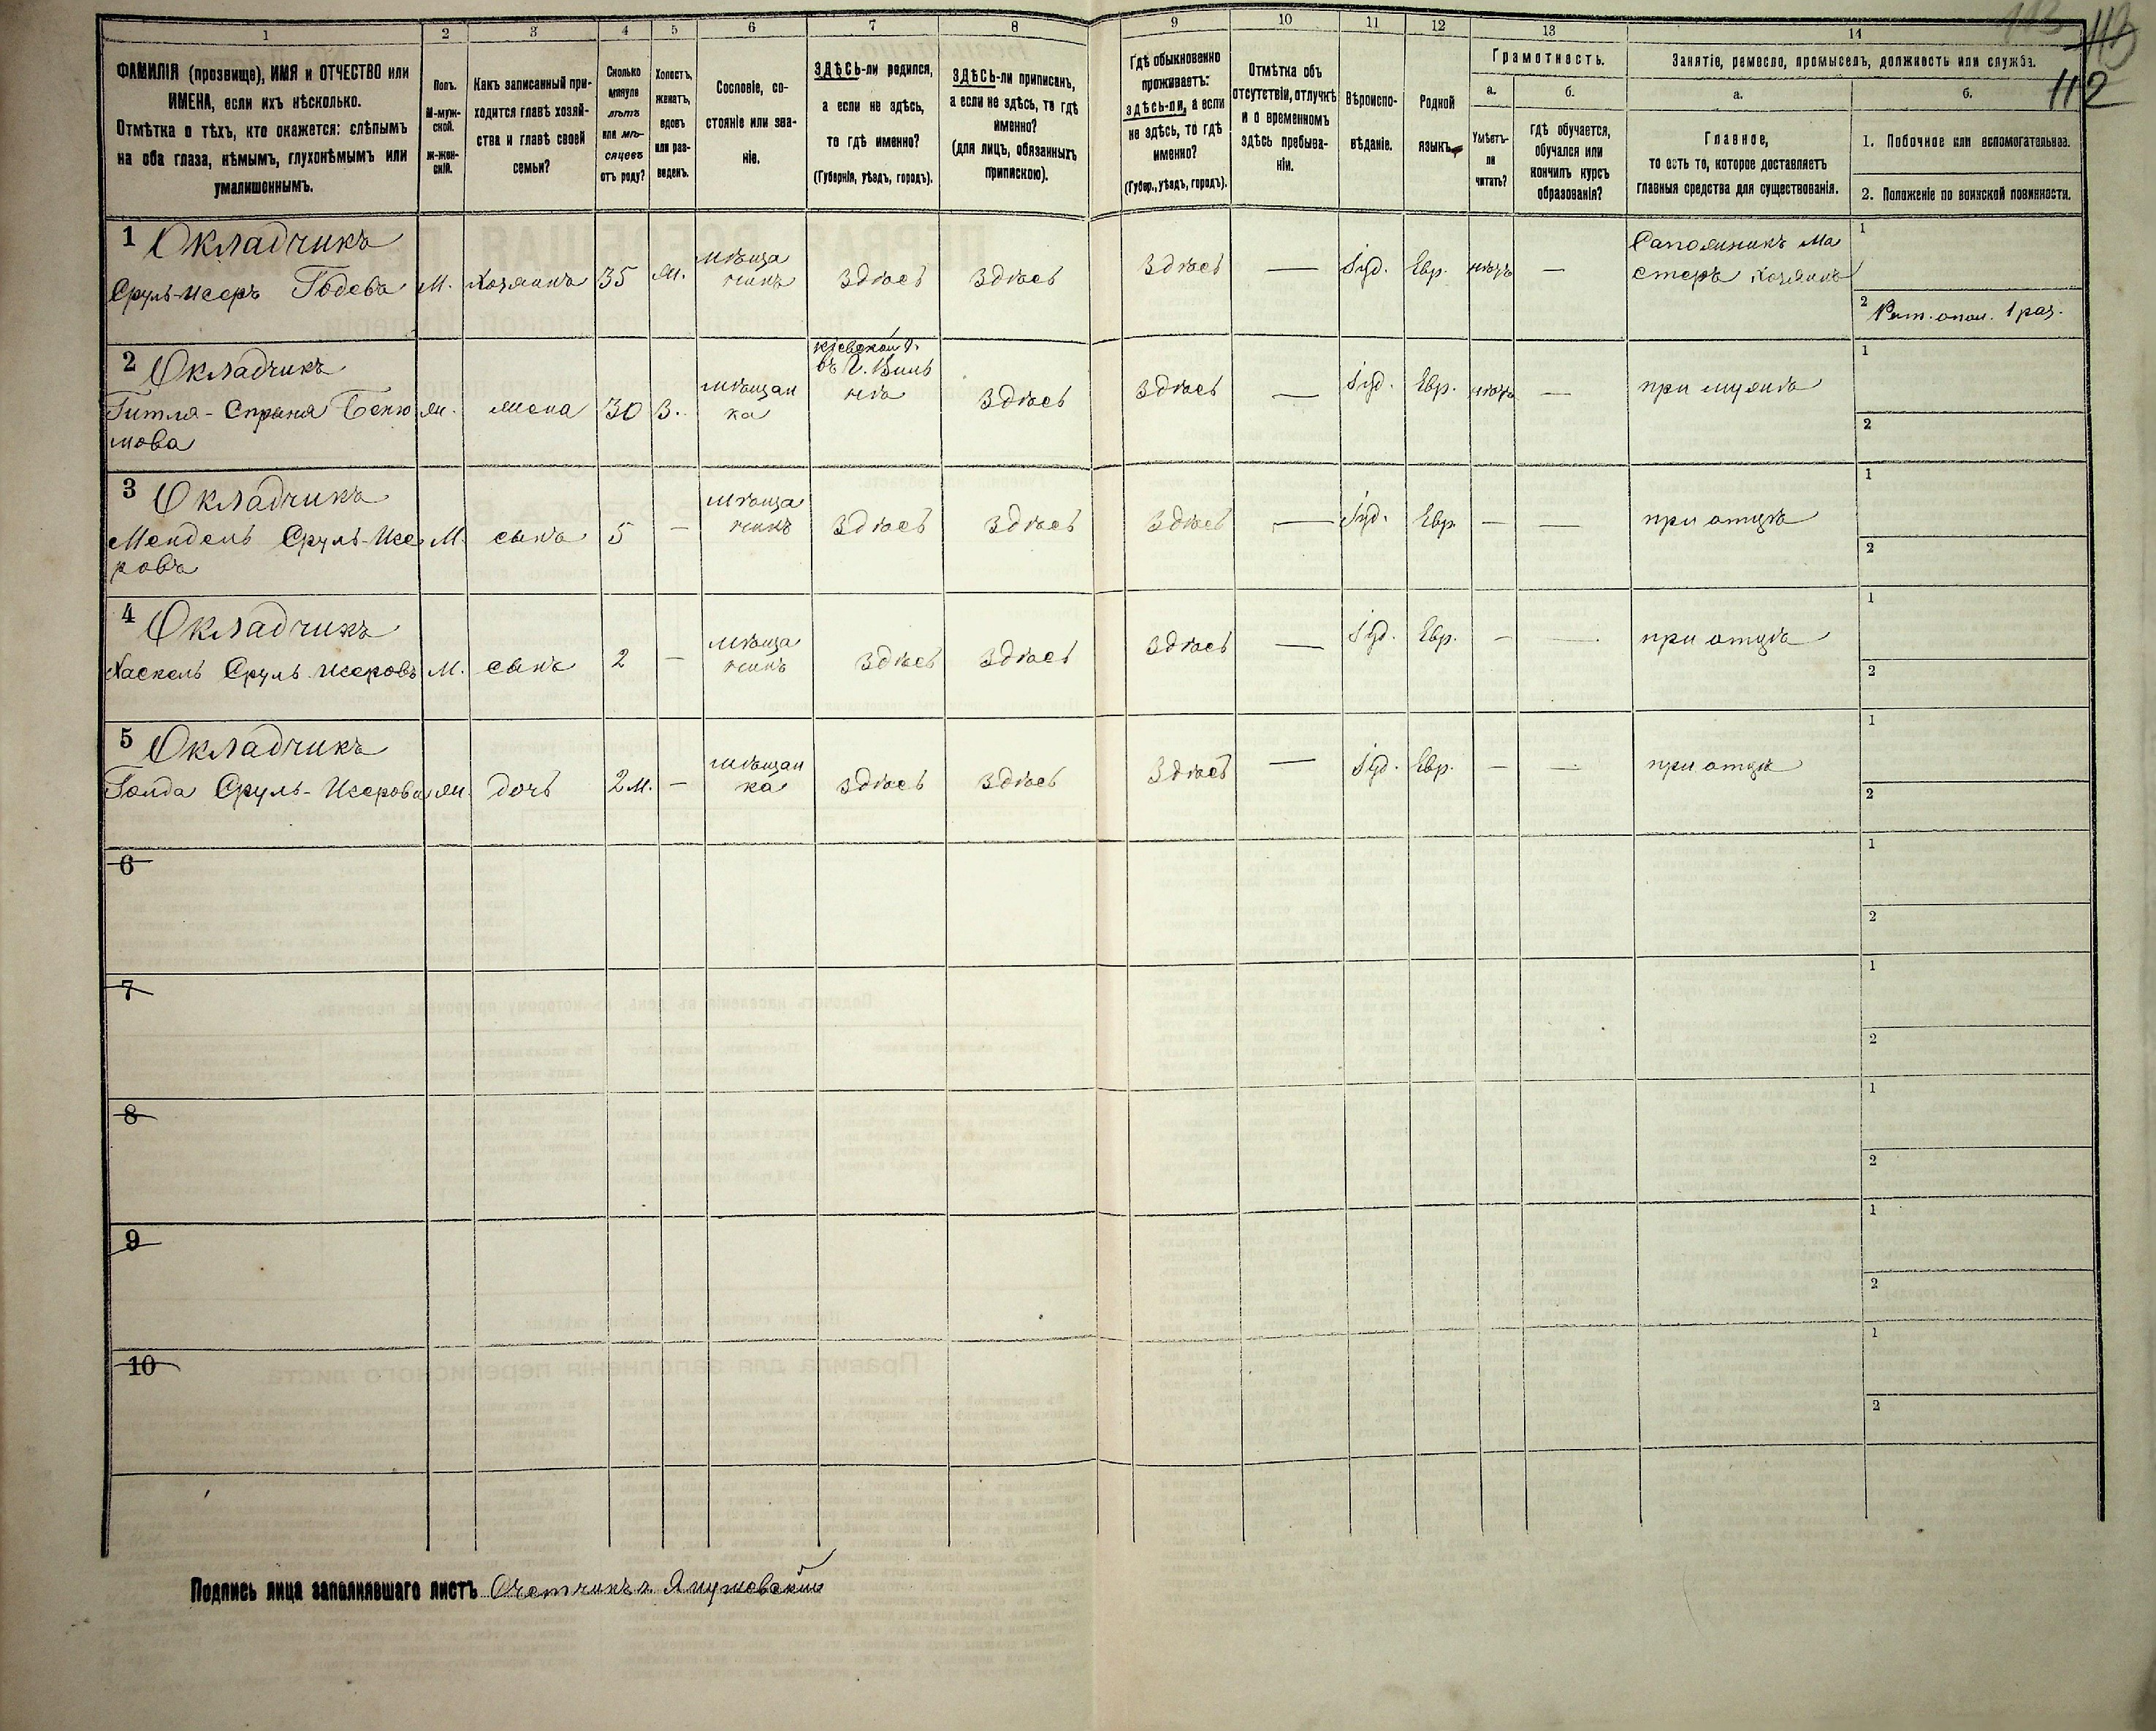 113
113
112
1 2 3 4 5 6 7 8 9 10 11 12 13 14
ФАМИЛІЯ (прозвище), ИМЯ и ОТЧЕСТВО или
ИМЕНА, если ихъ нѣсколько.
Отмѣтка о тѣхъ, кто окажется: слѣпымъ
на оба глаза, нѣмымъ, глухонѣмымъ или
умалишеннымъ.
Полъ.
М-муж-
ской.
Ж-жен-
скій.
Какъ записанный при-
ходится главѣ хозяй-
ства и главѣ своей
семьи?
Сколько
минуло
лѣтъ
или мѣ-
сяцевъ
отъ роду?
Холостъ,
женатъ,
вдовъ
или раз-
веденъ.
Сословіе, со-
стояніе или зва-
ніе.
ЗДѢСЬ-ли родился,
а если не здѣсь,
то гдѣ именно?
(Губернія, уѣздъ, городъ).
ЗДѢСЬ-ли приписанъ,
а если не здѣсь, то гдѣ
именно?
(для лицъ, обязанныхъ
припискою).
Гдѣ обыкновенно
проживаетъ:
здѣсь-ли, а если
не здѣсь, то гдѣ
именно?
(Губер., уѣздъ, городъ).
Отмѣтка объ
отсутствіи, отлучкѣ
и о временномъ
здѣсь пребыва-
ніи.
Вѣроиспо-
вѣданіе.
Родной
языкъ.
Грамотность.
а.
Умѣетъ-
ли
читать?
б.
гдѣ обучается,
обучался или
кончилъ курсъ
образованія?
Занятіе, ремесло, промыселъ, должность или служба.
а.
Главное,
то есть то, которое доставляетъ
главныя средства для существованія.
б.
1. Побочное или вспомогательное.
2. Положеніе по воинской повинности.
1 Окладчикъ
Сруль-Исеръ М. Хозяинъ 35 Ж. Мѣща
нинъ Здѣсь Здѣсь Здѣсь — Іуд. Евр. нѣтъ — Сапожникъ Ма
стеръ хозяинъ
1
2 Рат. опол. 1 раз.
2 Окладчикъ
Гитля- Беню
мова Ж. жена 30 З. мѣщан
ка Кіевской г.
Здѣсь Здѣсь — Іуд. Евр. нѣтъ — при мужѣ
1
2
3 Окладчикъ
Мендель Сруль-Исе
ровъ М. сынъ 5 — Мѣща
нинъ Здѣсь Здѣсь Здѣсь — Іуд. Евр. — — при отцѣ
1
2
4 Окладчикъ
Хаскель Сруль-Исеровъ М. сынъ 2 — Мѣща
нинъ Здѣсь Здѣсь Здѣсь — Іуд. Евр. — — при отцѣ
1
2
5 Окладчикъ
Голда Сруль-Исерова Ж. дочь 2 м. — мѣщан
ка Здѣсь Здѣсь Здѣсь — Іуд. Евр. — — при отцѣ
1
2
6
1
2
7
1
2
8
1
2
9
1
2
10
1
2
Подпись лица заполнявшаго листъ Счетчикъ